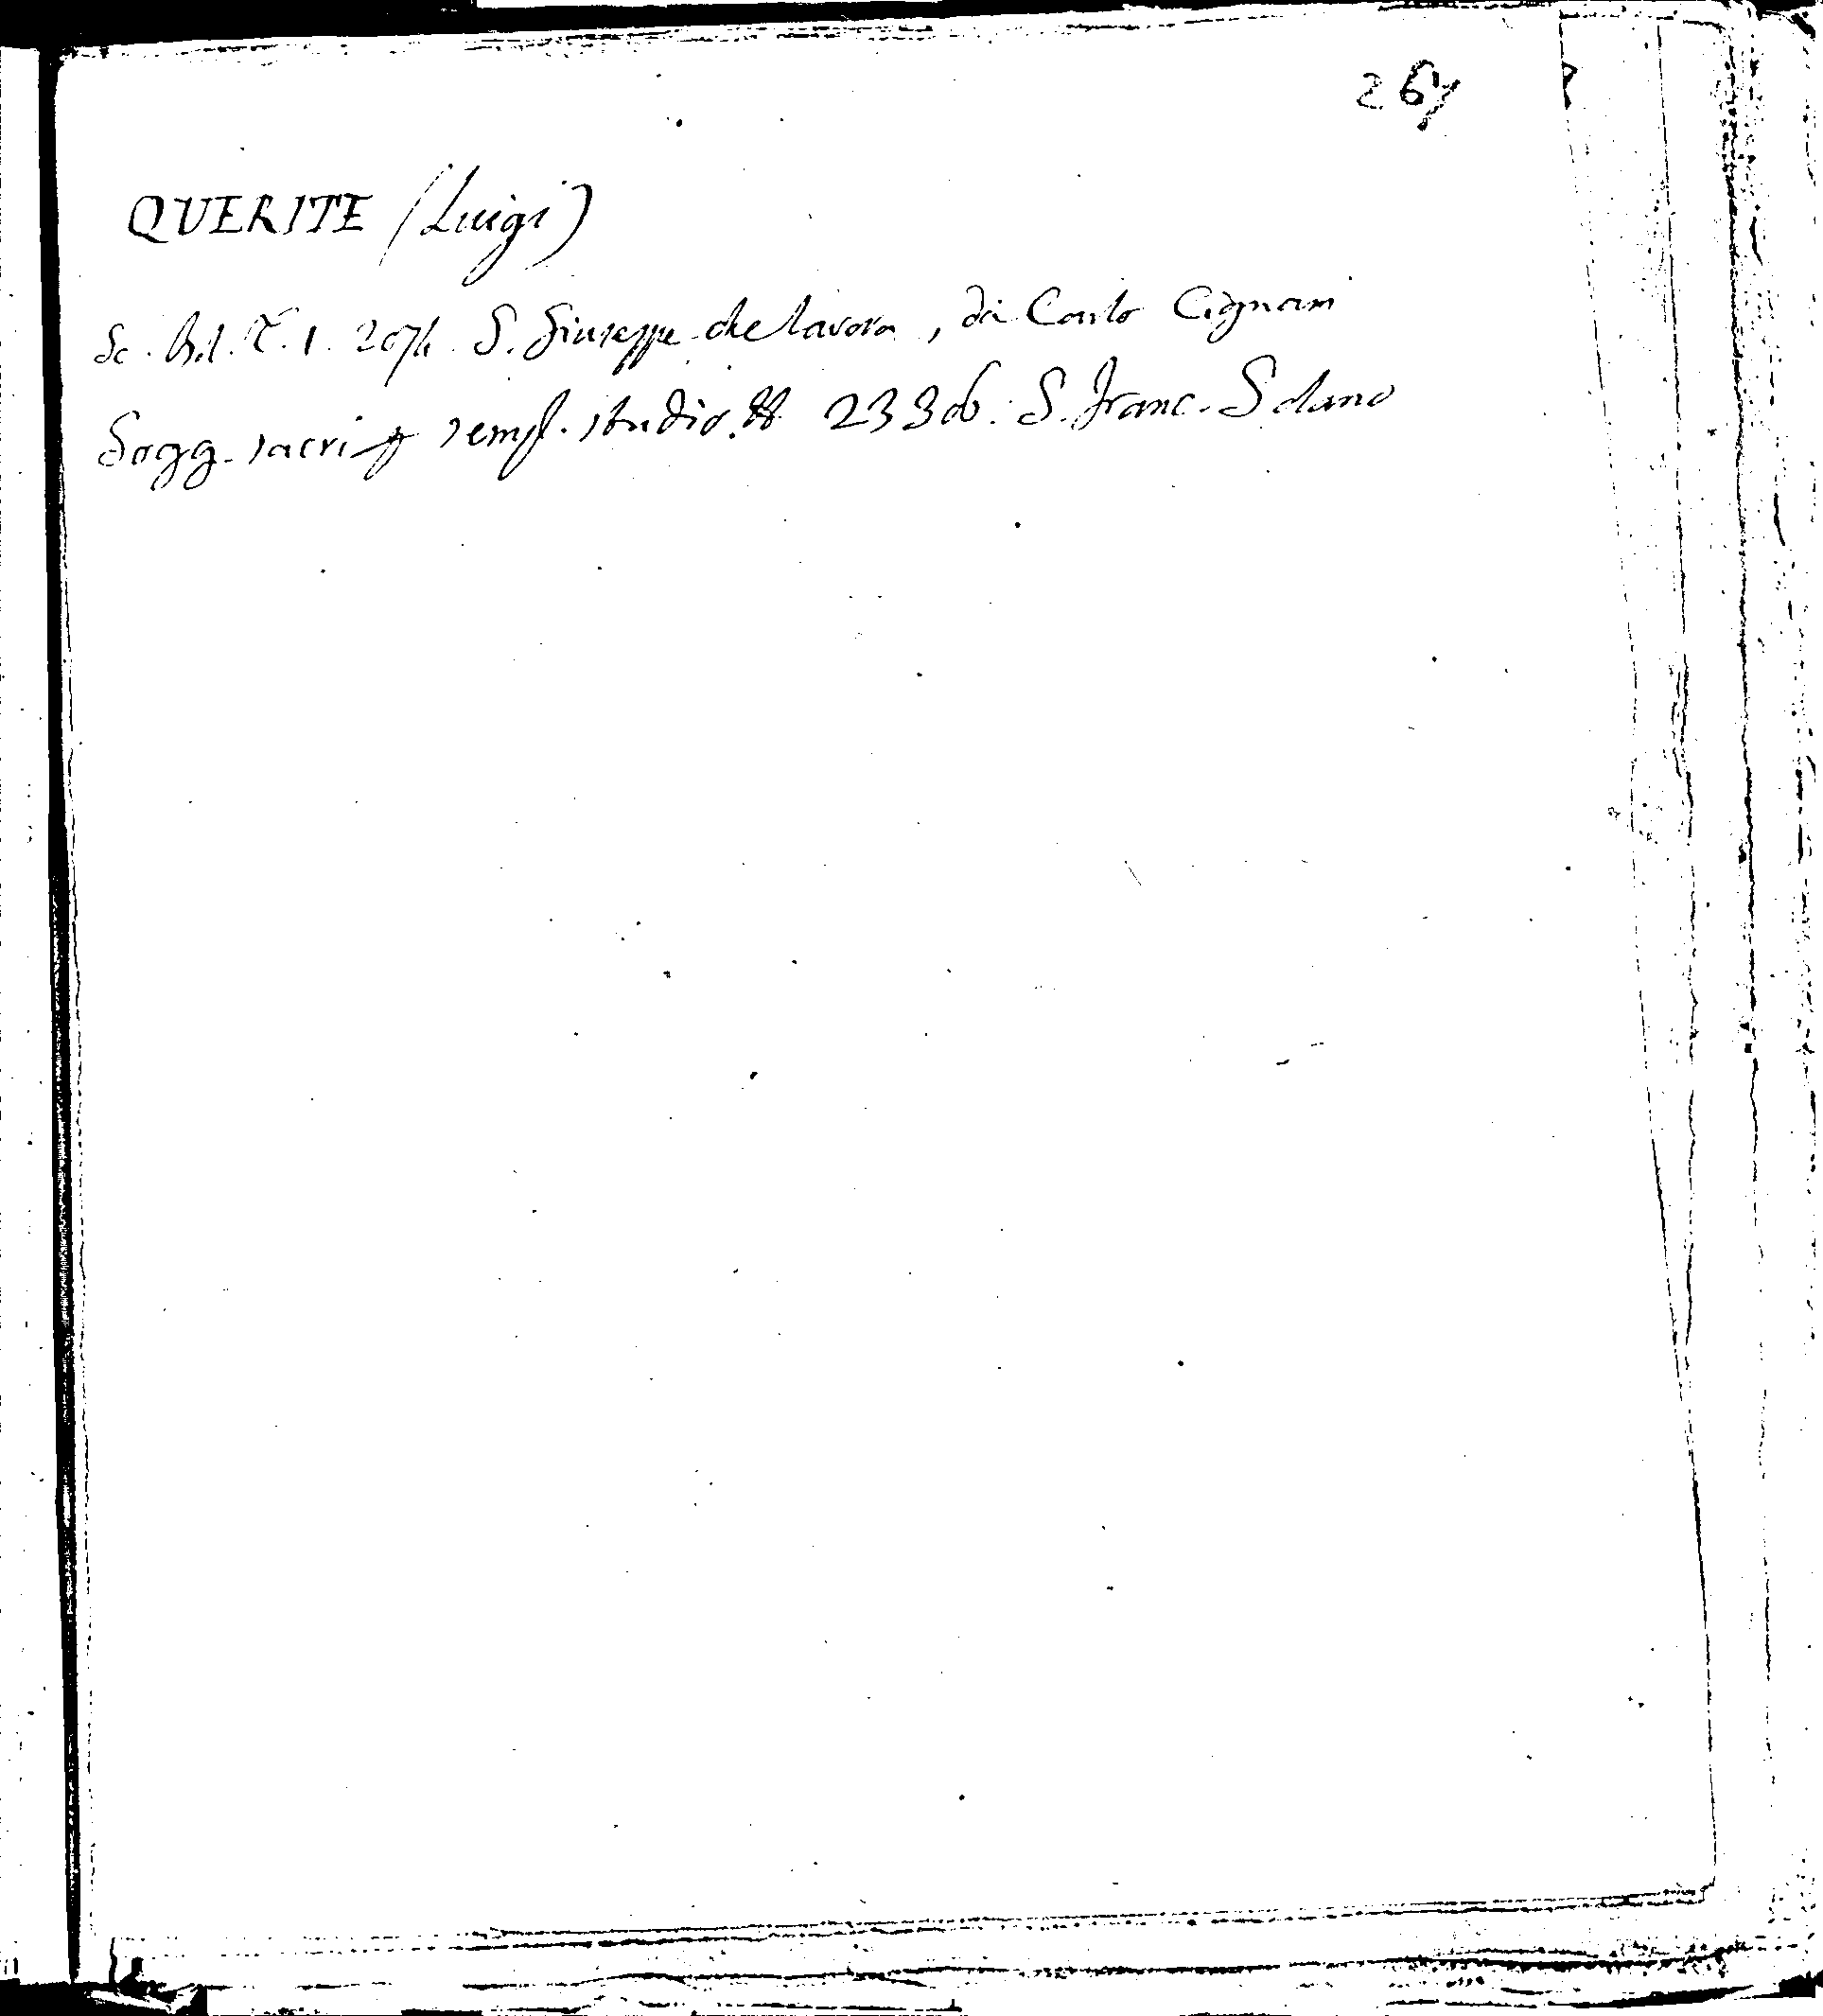 267
QVERITE (Luigi)
Sc. Bol. T. 1. 207b. S. Giuseppe che lavora, di Carlo Cignani
Sogg. sacri p sempl. studio. 233 S. Franc. Solano